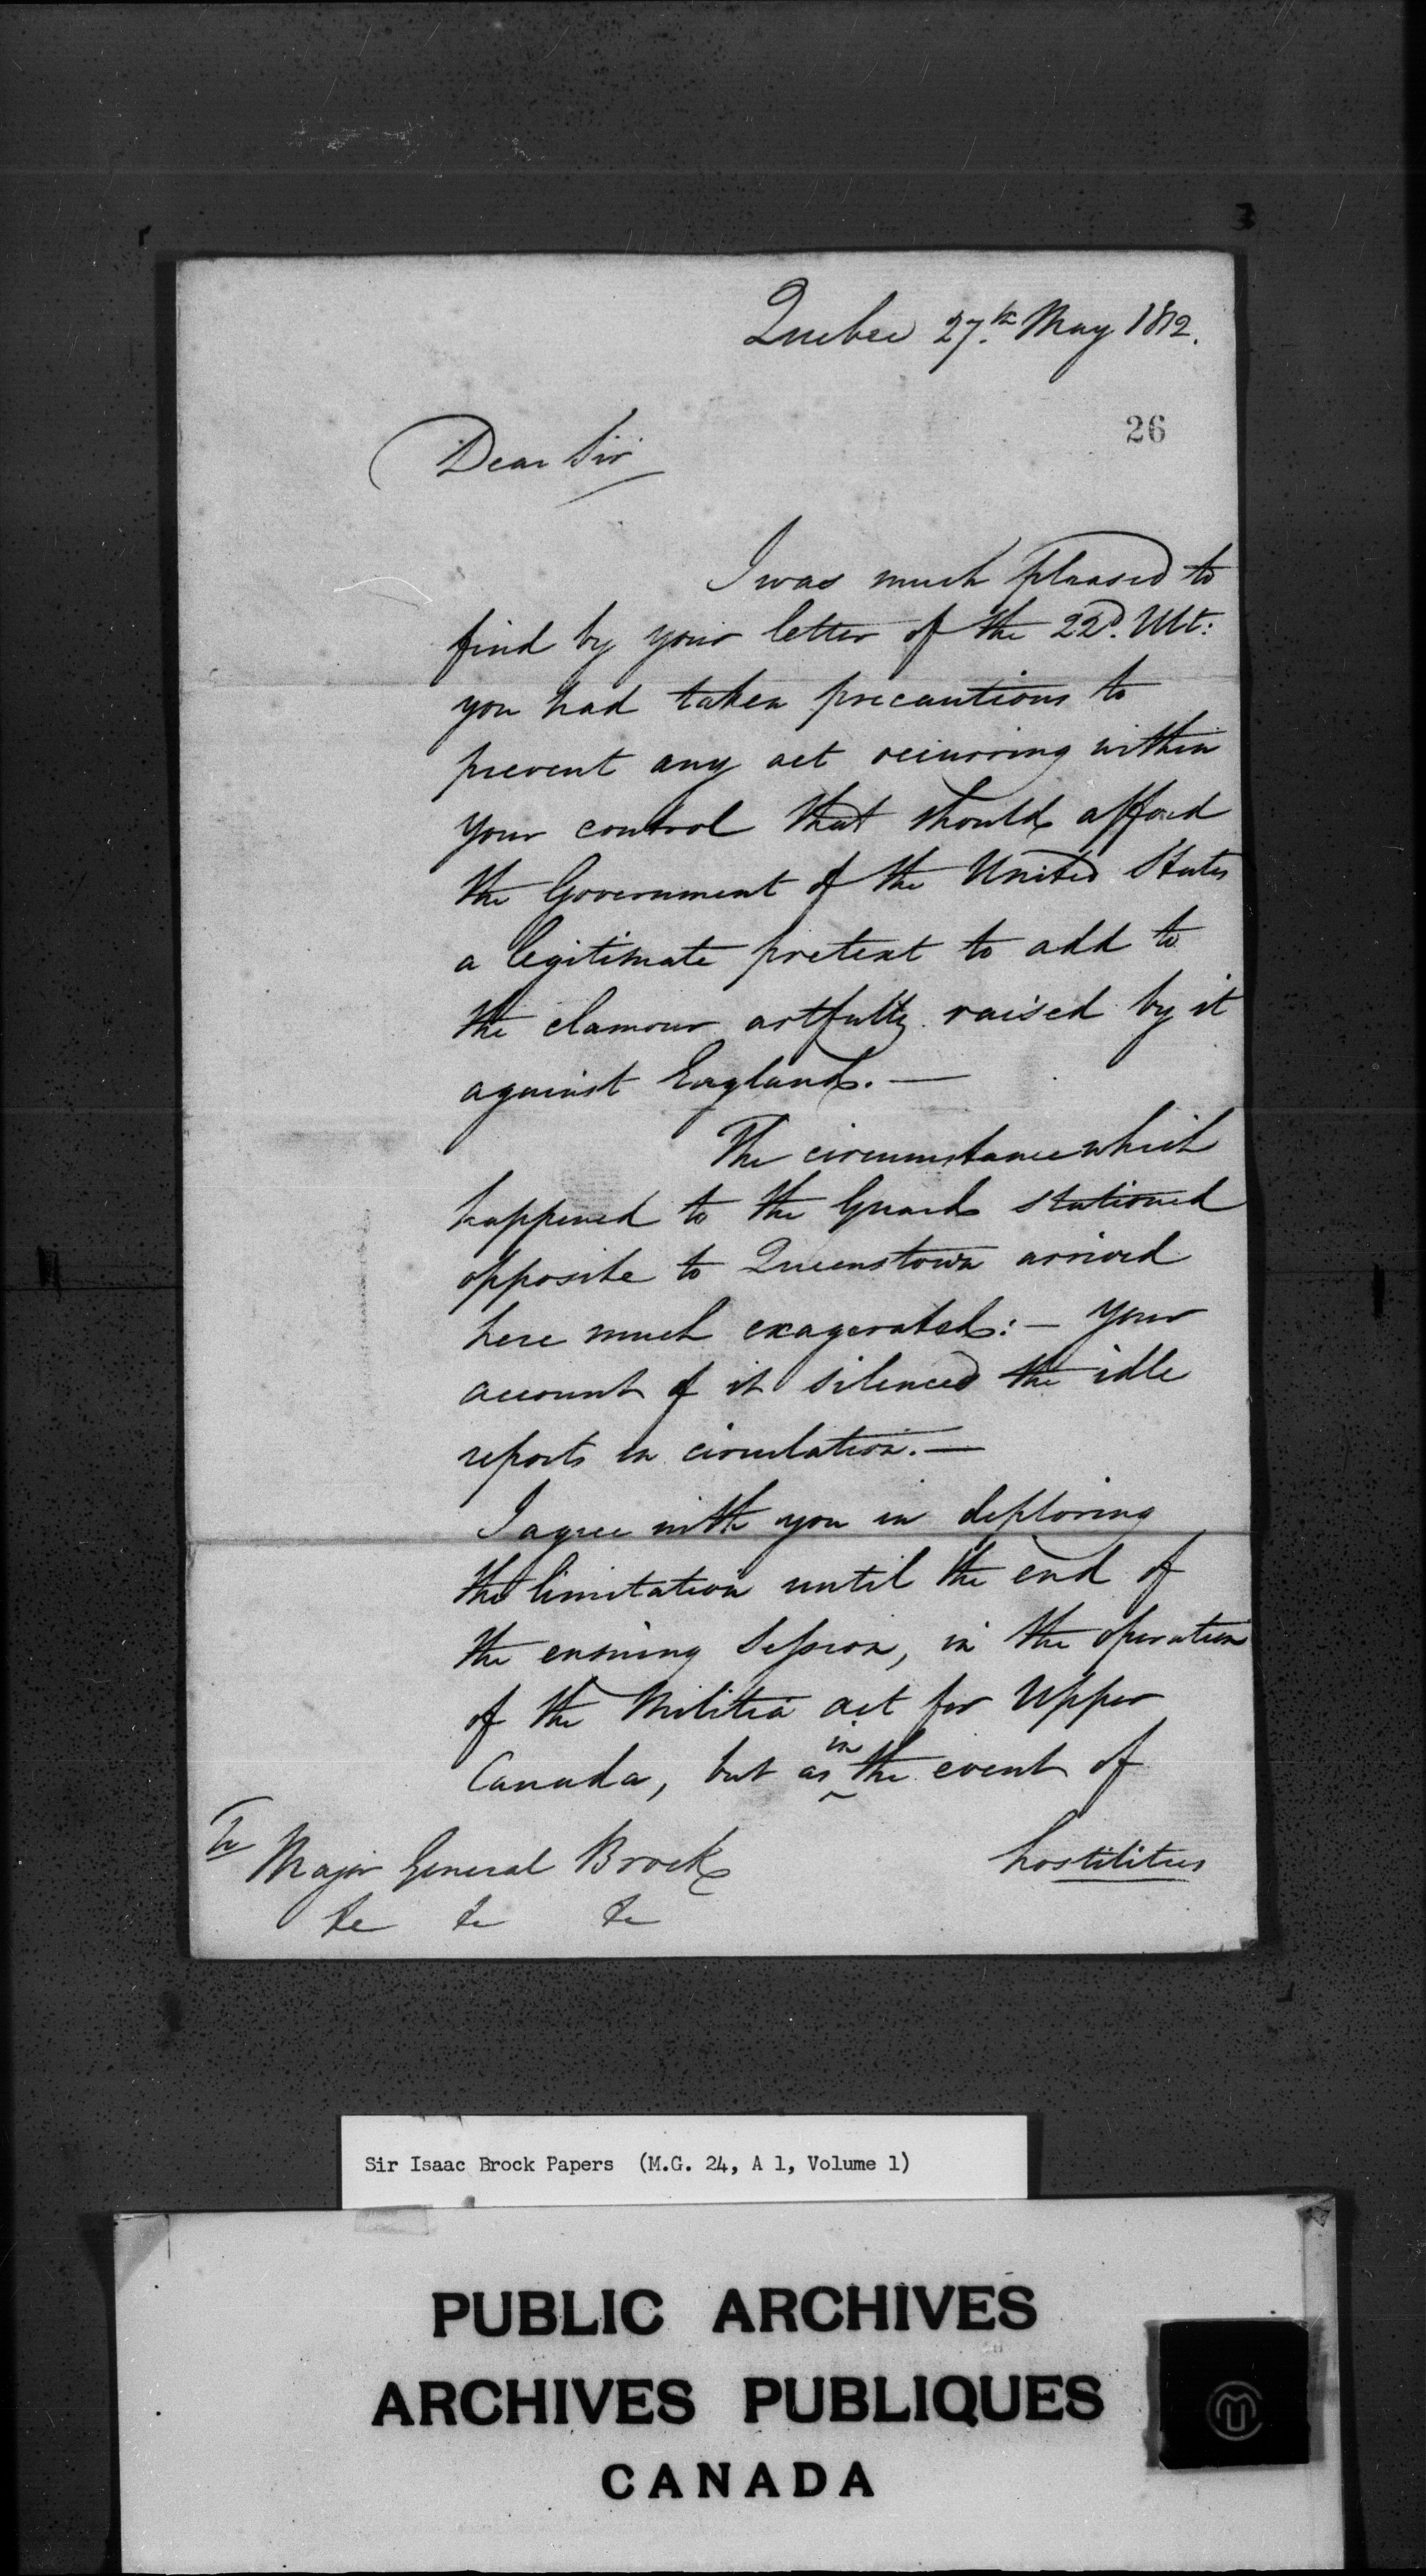 Quebec 27.th May 1812.
26
Dear Sir
I was much pleased to
find by your letter of the 22d. Ult:
you had taken precautions to
prevent any act occurring within
your control that should afford
the Government of the United States
a legitimate pretext to add to
the clamour artfully raised by it
against England. —
The circumstance which
happened to the Guard stationed
opposite to Queenstown arrived
here much exagerated: — Your
account of it silenced the idle
reports in circulation. —
I agree with you in deploring
the limitation until the end of
the ensuing Session, in the operation
of the Militia act for Upper
Canada, but as in the event of
hostilities
To
Major General Brock
&c &c &c
Sir Isaac Brock Papers (M.G. 24, A 1, Volume 1)
PUBLIC ARCHIVES
ARCHIVES PUBLIQUES
CANADA